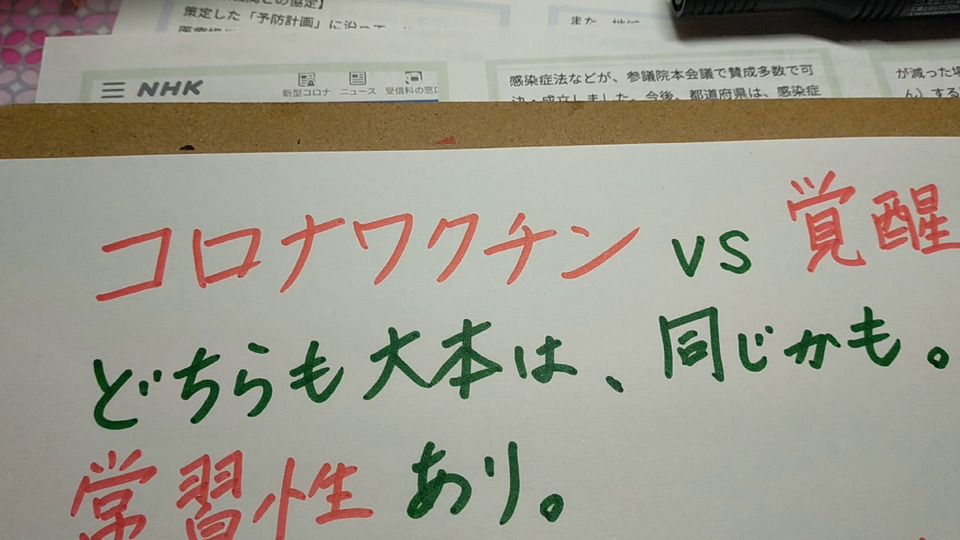 策定した「予防計画」に沿って
また、地域
NHK
新型コロナ ニュース 受信料の窓口
感染症法などが、参議院本会議で賛成多数で可
決・成立しました。今後、都道府県は、感染症
が減った場
ん）する
コロナワクチン vs 覚醒
どちらも大本は、同じかも。
常習性あり。